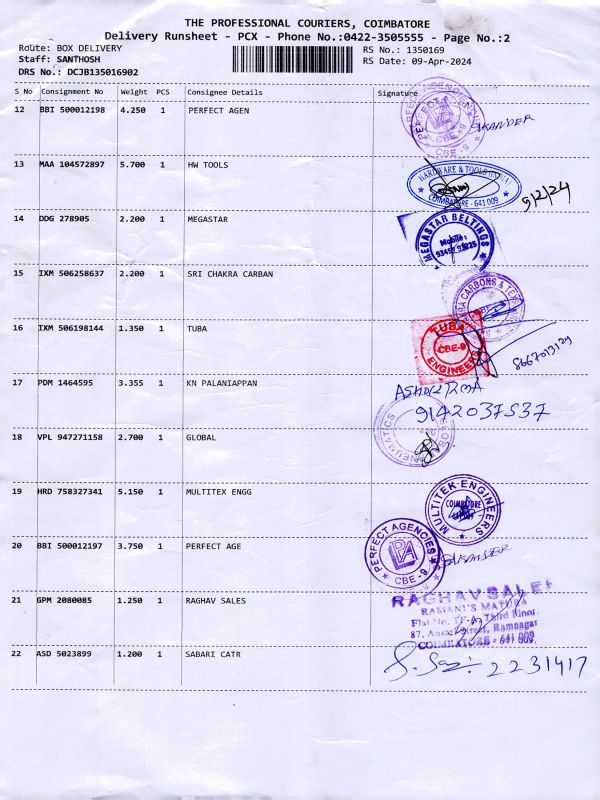 THE PROFESSIONAL COURIERS, COIMBATORE
Delivery Runsheet - PCX - Phone No.:0422-3505555 - Page No.:2
Route: BOX DELIVERY
RS No.: 1350169
Staff: SANTHOSH
RS Date: 09-Apr-2024
DRS No.: DCJB135016902
S No Consignment No Weight PCS Consignee Details Signature
12 BBI 500012198 4.250 1 PERFECT AGEN
CBE-9
13 MAA 104572897 5.700 1 HW TOOLS
HARDWARE & TOOLS
COIMBATORE - 641 009
9/2/24
14 DDG 278905 2.200 1 MEGASTAR
MEGASTAR BELTINGS
Mobile:
15 IXM 506258637 2.200 1 SRI CHAKRA CARBAN
CARBONS &
16 IXM 506198144 1.350 1 TUBA
TUBA
CBE-9
ENGINEERS
17 PDM 1464595 3.355 1 KN PALANIAPPAN
9142037537
18 VPL 947271158 2.700 1 GLOBAL
19 HRD 758327341 5.150 1 MULTITEX ENGG
MULTITEK ENGINEERS
COIMBATORE
20 BBI 500012197 3.750 1 PERFECT AGE
PERFECT AGENCIES
CBE-9
21 GPM 2080085 1.250 1 RAGHAV SALES
RAGHAV SALE
RAMANI'S
Flat No. Third Floor
87, Street, Ramnagar
COIMBATORE - 641 009.
22 ASD 5023899 1.200 1 SABARI CATR
2231417